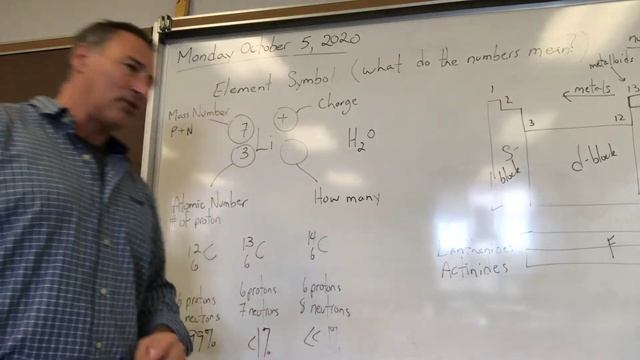 Monday October 5, 2020
Element Symbol (what do the numbers mean?)
metalloids
Mass Number
P+N
7
+
Charge
3
Li
H2O
Atomic Number
# of proton
How many
1
2
3
12
13
metals
S-
block
d-block
F
Actinines
12 6 C
13 6 C
14 6 C
6 protons
6 protons
6 protons
neutrons
7 neutrons
8 neutrons
99%
<1%
<< 1%